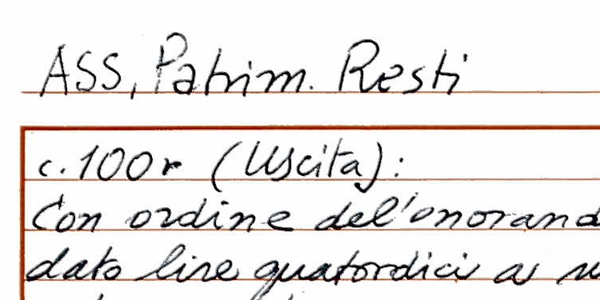 ASS, Patrim. Resti
c. 100r (Uscita):
Con ordine del'onorand
dato lire quatordici a